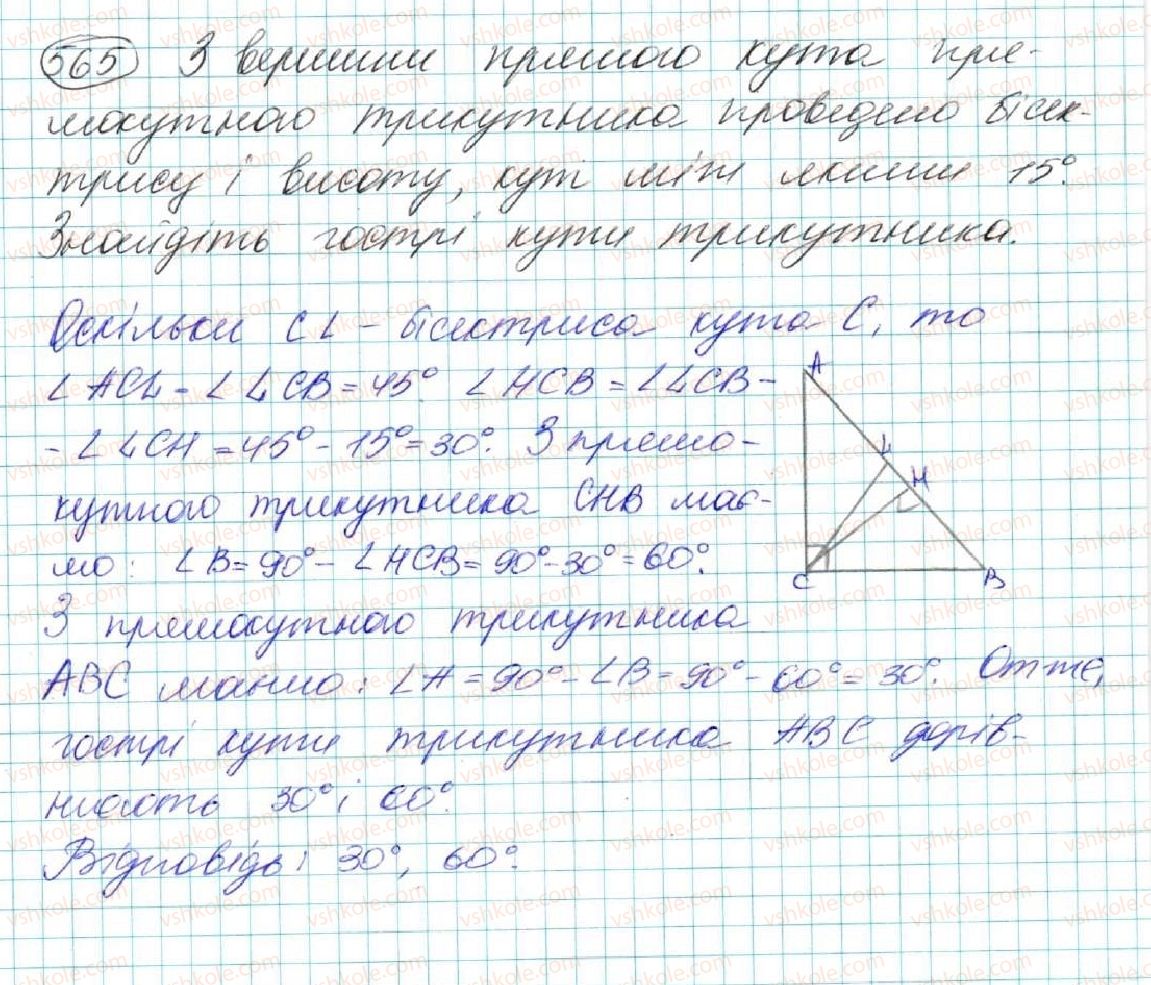 565 З вершини прямого кута пря-
мокутного трикутника проведено бісек-
трису і висоту, кут між якими 15°.
Знайдіть гострі кути трикутника.
Оскільки CL - бісектриса кута C, то
∠ACL = ∠LCB = 45°. ∠HCB = ∠LCB -
- ∠LCH = 45° - 15° = 30°. З прямо-
кутного трикутника CHB має-
мо: ∠B = 90° - ∠HCB = 90° - 30° = 60°.
З прямокутного трикутника
ABC маємо: ∠A = 90° - ∠B = 90° - 60° = 30°. Отже,
гострі кути трикутника ABC дорів-
нюють 30° і 60°.
Відповідь: 30°, 60°.
A
L
H
C
B
vshkole.com